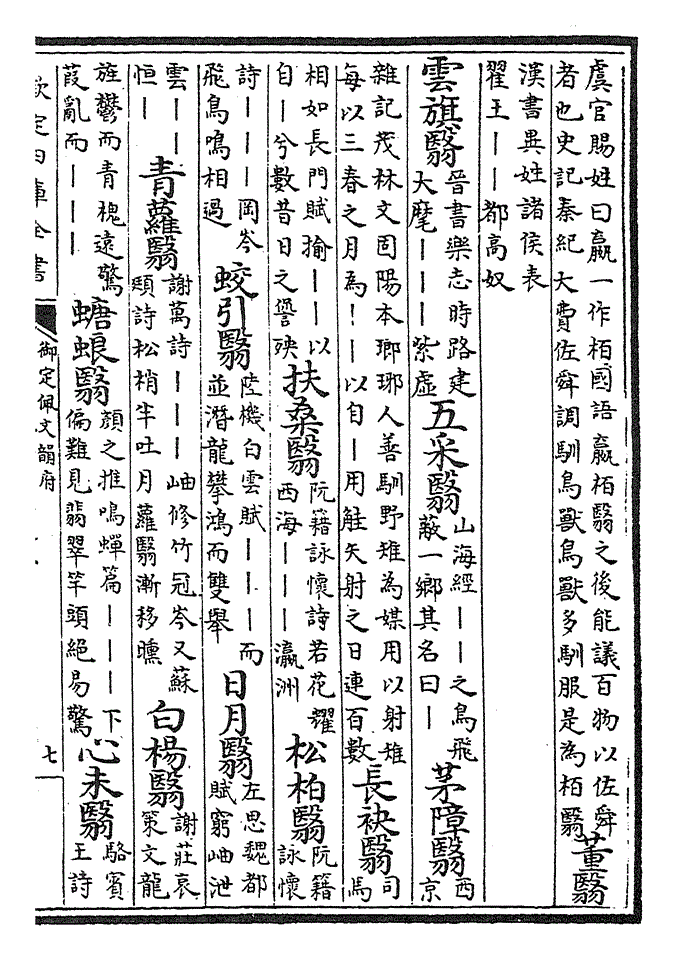 虞官賜姓曰嬴一作栢國語嬴栢翳之後能議百物以佐舜
者也史記秦紀大費佐舜調馴鳥獸鳥獸多馴服是為栢翳
董翳
漢書異姓諸侯表
翟王——都高奴
雲旗翳
晉書樂志時路建
大麾———紫虛
五采翳
山海經——之鳥飛
蔽一鄉其名曰—
茅障翳
西
京
雜記茂林文固陽本瑯琊人善馴野雉為媒用以射雉
每以三春之月為——以自—用觟矢射之日連百數
長袂翳
司
馬
相如長門賦揄——以
自—兮數昔日之諐殃
扶桑翳
阮籍詠懷詩若花耀
西海———瀛洲
松柏翳
阮籍
詠懷
詩———岡岑
飛鳥鳴相過
蛟引翳
陸機白雲賦———而
並潛龍攀鴻而雙舉
日月翳
左思魏都
賦窮岫泄
雲——
恒—
青蘿翳
謝萬詩———岫修竹冠岑又蘇
頲詩松梢半吐月蘿翳漸移曛
白楊翳
謝莊哀
策文龍
旌鬱而青槐遠驚
葭亂而———
螗蜋翳
顏之推鳴蟬篇———下
偏難見翡翠竿頭絕易驚
心未翳
駱賓
王詩
欽定四庫全書
御定佩文韻府
七